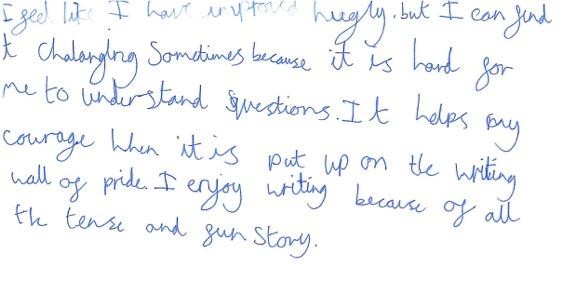 I feel like I have improved hugly. but I can find
t chalanging Sometimes because it is hard for
me to understand questions. It helps my
courage when it is put up on the writing
wall of pride. I enjoy writing because of all
the tense and fun story.